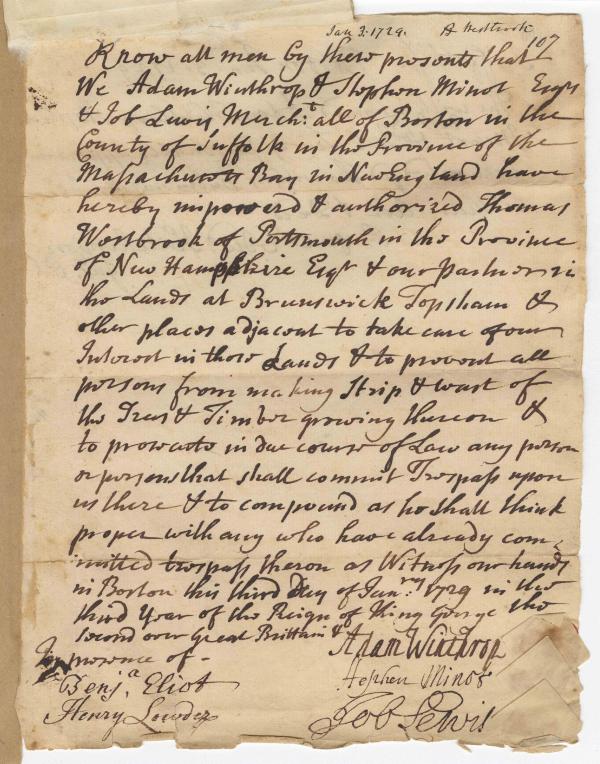 Jan 3. 1729. A Westbrook
107
Know all men by these presents that
We Adam Winthrop & Stephen Minot Esqrs
& Job Lewis Mercht all of Boston in the
County of Suffolk in the Province of the
Massachusets Bay in New England have
hereby impowerd & authorized Thomas
Westbrook of Portsmouth in the Province
of New Hampshire Esqr & our partner in
the Lands at Brunswick Topsham &
other places adjacent to take care of our
Interest in those Lands & to prevent all
persons from making Strip & wast of
the Trees & Timber growing thereon &
to prosecute in due course of Law any person
or persons that shall commit Trespass upon
us there & to compound as he shall think
proper with any who have already com-
mitted trespass theron as Witness our hands
in Boston this third Day of Janry 1729 in the
third Year of the Reign of King George the
Second over Great Brittain &
In presence of -
Adam Winthrop
Benja Eliot
Stephen Minot
Henry Lowder
Job Lewis